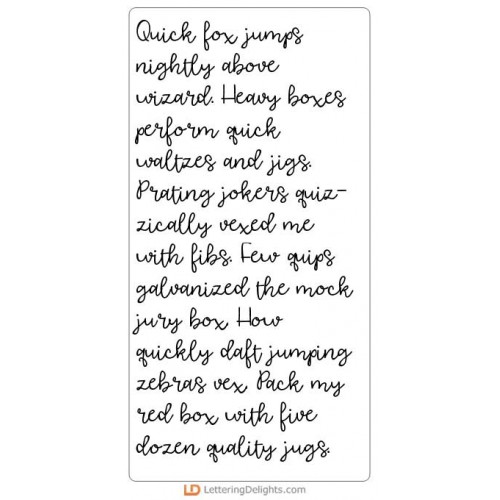 Quick fox jumps
nightly above
wizard. Heavy boxes
perform quick
waltzes and jigs.
Prating jokers quiz-
zically vexed me
with fibs. Few quips
galvanized the mock
jury box. How
quickly daft jumping
zebras vex. Pack my
red box with five
dozen quality jugs.
LD LetteringDelights.com